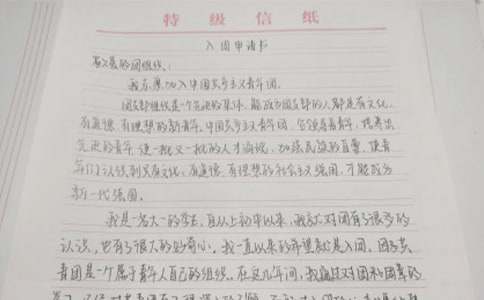 特级信纸
入团申请书
敬爱的团组织:
我志愿加入中国共产主义青年团。
团支部组织是一个先进的集体,能成为团支部的人都是有文化、
有道德、有理想的新青年。中国共产主义青年团,它领导着青年,培养出
先进的青年,使一批又一批的人才涌现,加强民族的自尊,使青
年们认识到只有文化、有道德、有理想的社会主义强国,才能成为
新一代强国。
我是一名大一的学生,自从上初中以来,我就对团有了很多的
认识,也有了很大的好奇心。我一直以来的希望就是入团。团是
青团是一个属于青年人自己的组织。在这几年间,我通过对团和团章的